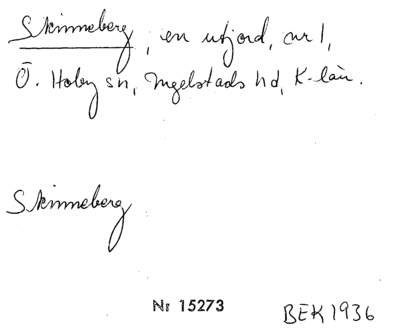 Skinneberg, en utjord, nr 1,
Ö. Hoby sn, Ingelstads hd, K-län.
Skinneberg
Nr 15273
BEK 1936